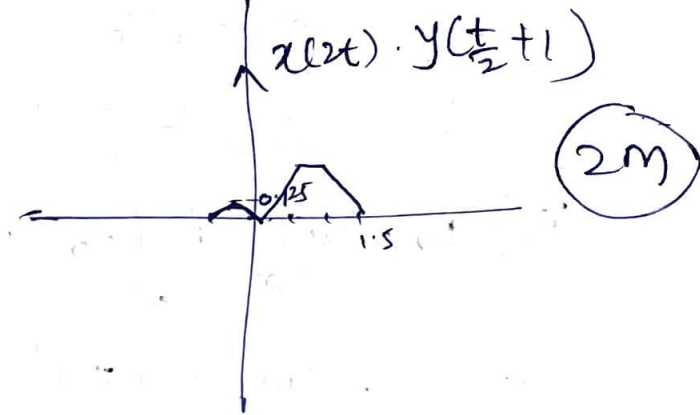 x(2t) · y(t/2 + 1)
2M
0.125
1.5